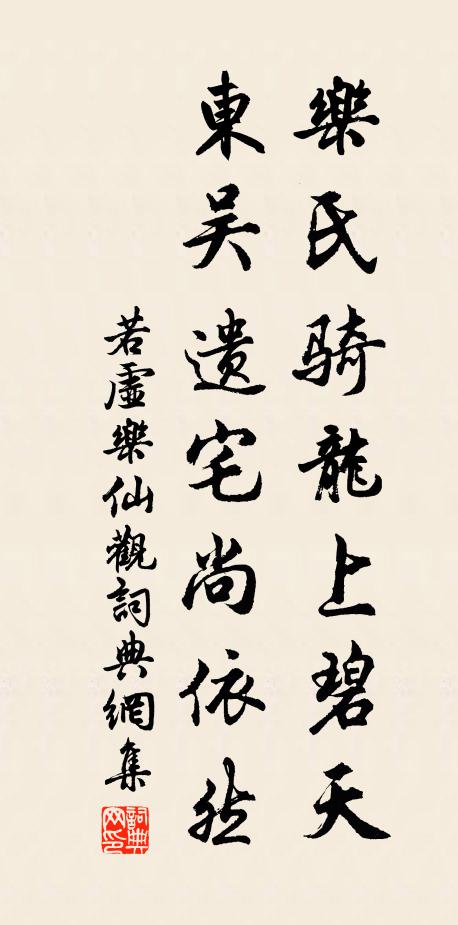 樂氏騎龍上碧天
東吴遺宅尚依然
若虛樂仙觀詞典網集
詞典网印